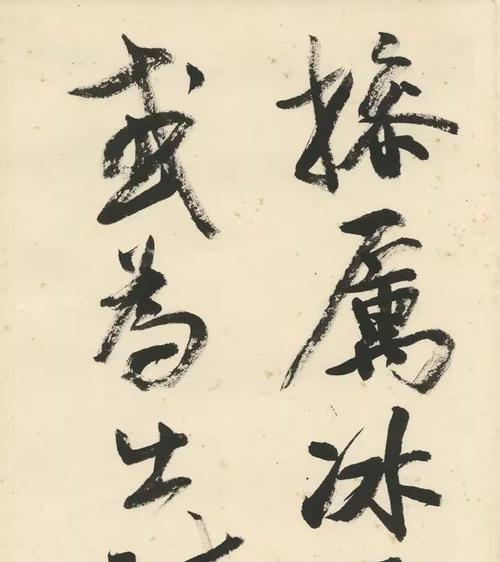 操厲冰
或為出